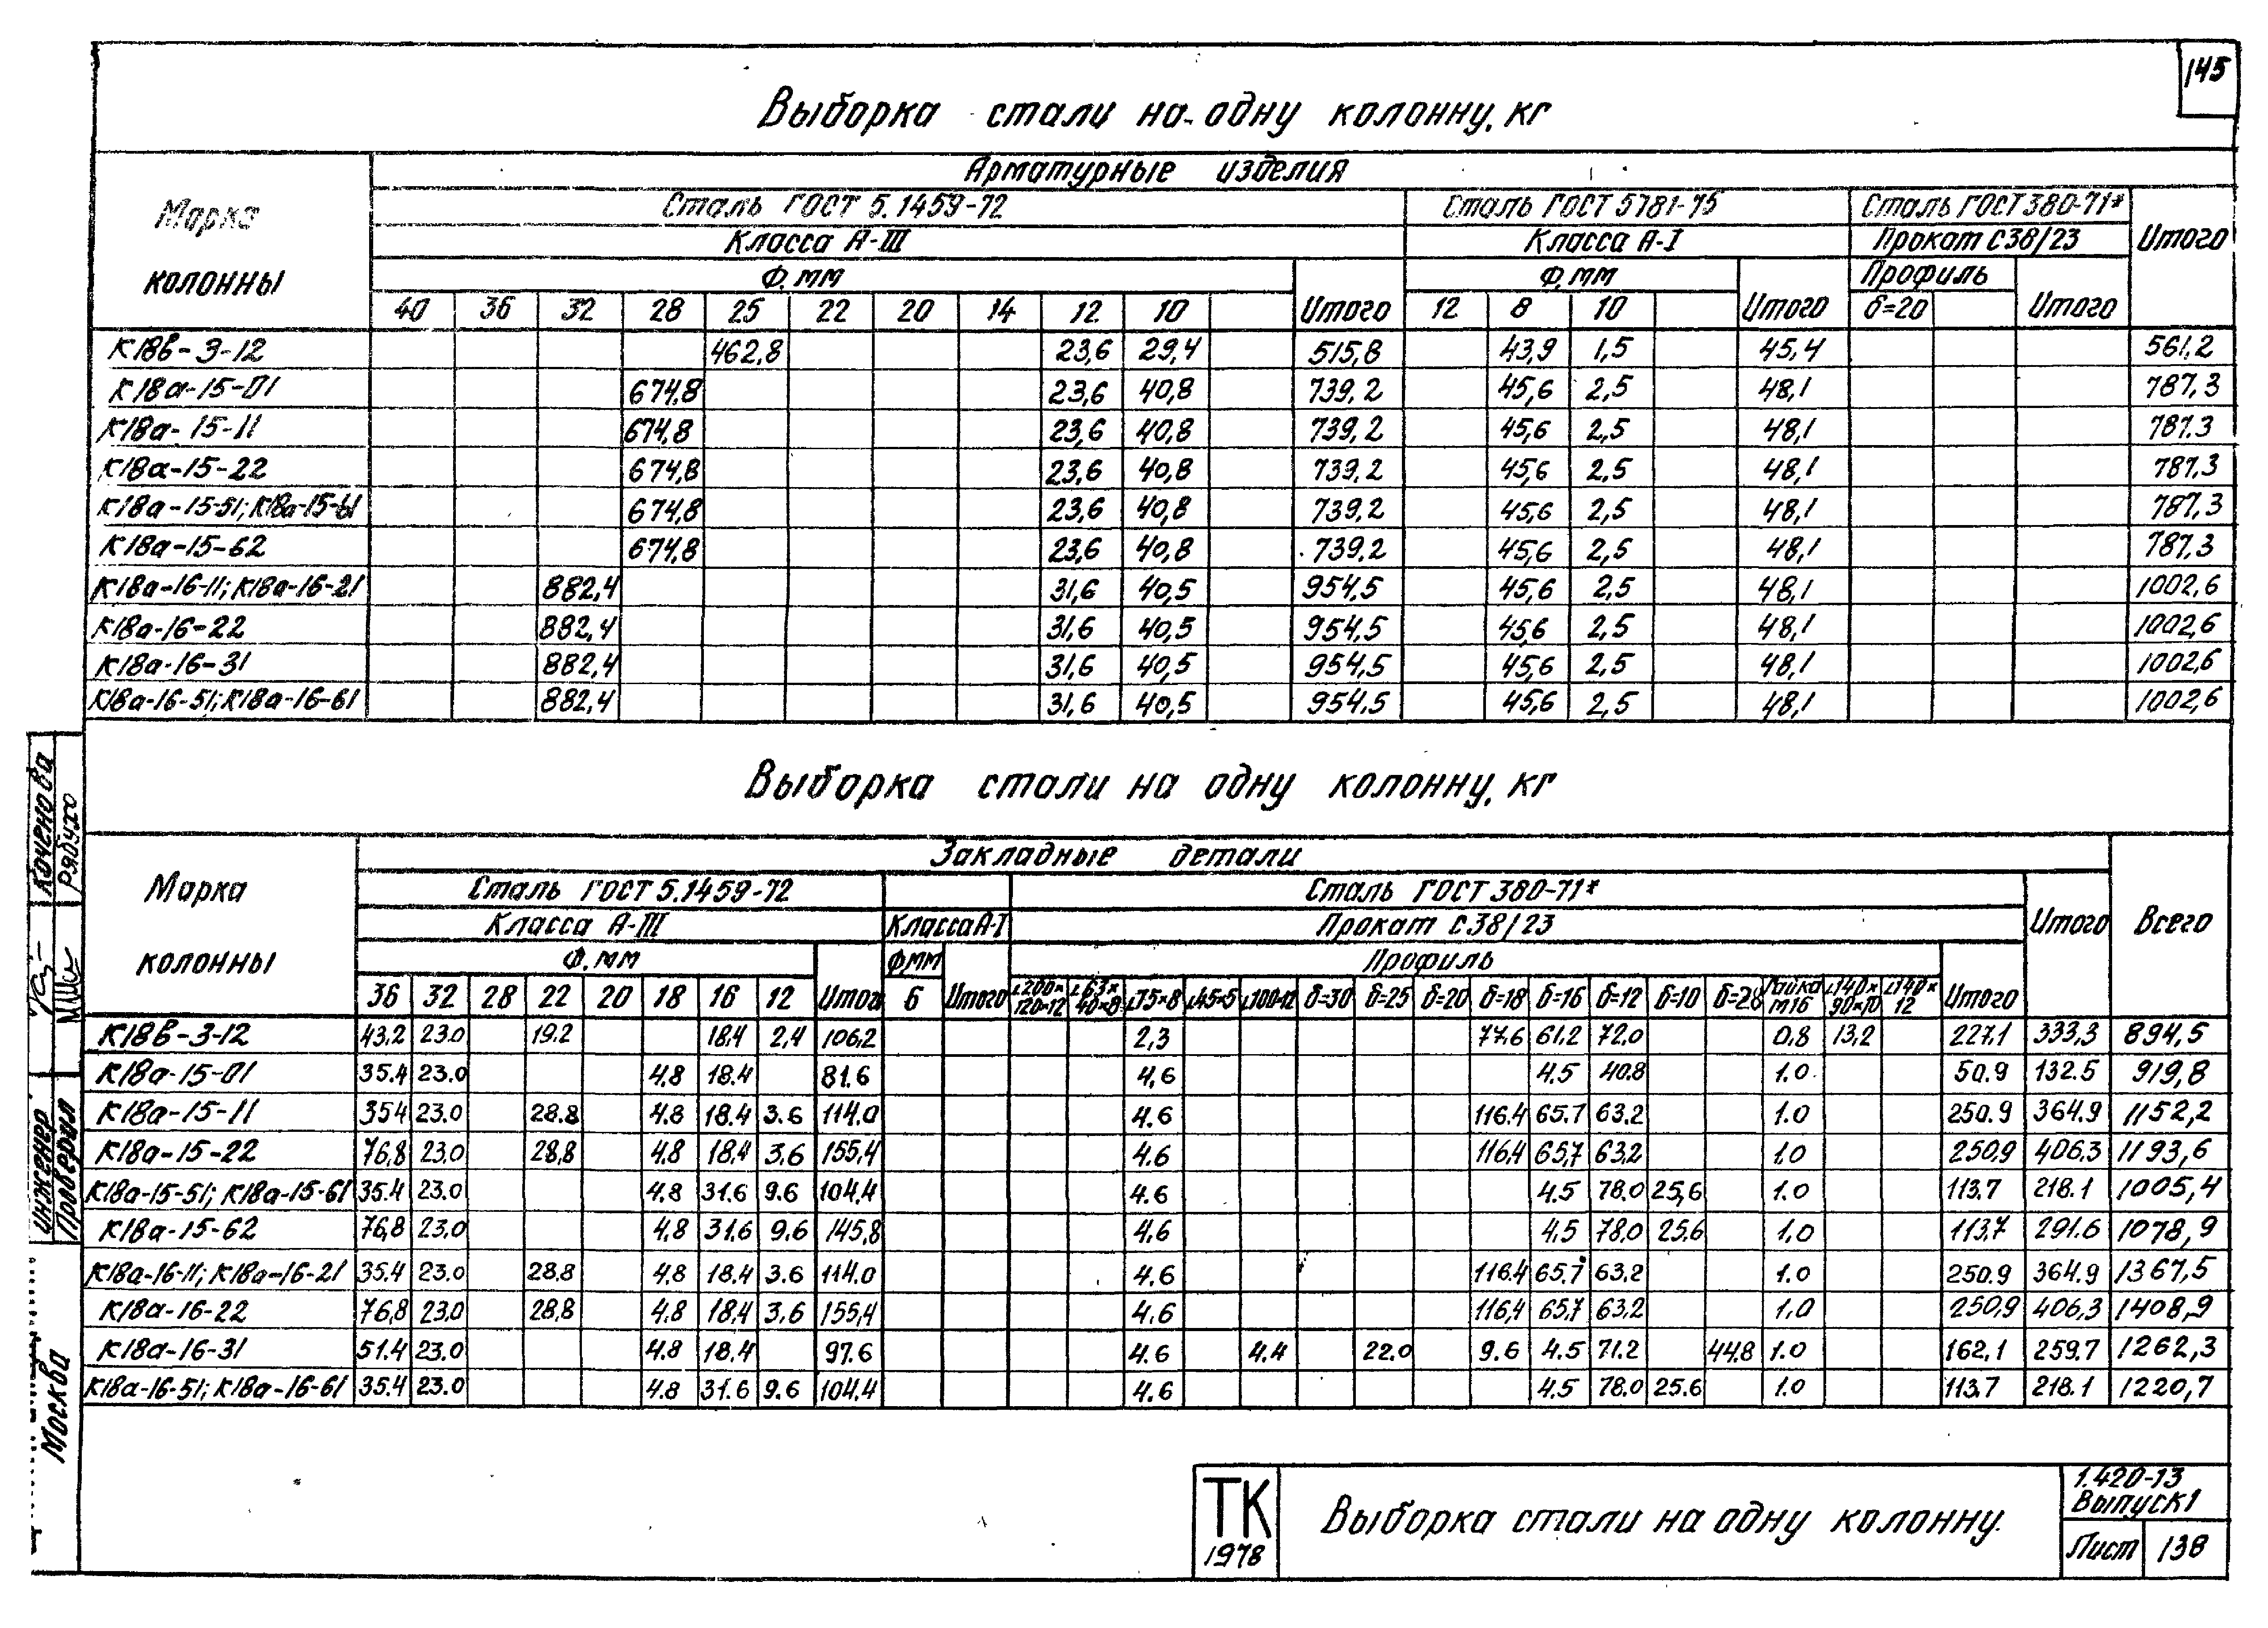 145
Выборка стали на одну колонну, кг
Марка колонны
Арматурные изделия
Сталь ГОСТ 5.1459-72 Сталь ГОСТ 5781-75 Сталь ГОСТ 380-71* Итого
Класса А-III Класса А-I Прокат С38/23
Ф, мм Итого Ф, мм Итого Профиль Итого
40 36 32 28 25 22 20 14 12 10 12 8 10 δ=20
К18в-3-12 462,8 23,6 29,4 515,8 43,9 1,5 45,4 561,2
К18а-15-01 674,8 23,6 40,8 739,2 45,6 2,5 48,1 787,3
К18а-15-11 674,8 23,6 40,8 739,2 45,6 2,5 48,1 787.3
К18а-15-22 674,8 23,6 40,8 739,2 45,6 2,5 48,1 787,3
К18а-15-51; К18а-15-61 674,8 23,6 40,8 739,2 45,6 2,5 48,1 787,3
К18а-15-62 674,8 23,6 40,8 739,2 45,6 2,5 48,1 787,3
К18а-16-11; К18а-16-21 882,4 31,6 40,5 954,5 45,6 2,5 48,1 1002,6
К18а-16-22 882,4 31,6 40,5 954,5 45,6 2,5 48,1 1002,6
К18а-16-31 882,4 31,6 40,5 954,5 45,6 2,5 48,1 1002,6
К18а-16-51; К18а-16-61 882,4 31,6 40,5 954,5 45,6 2,5 48,1 1002,6
Выборка стали на одну колонну, кг
Марка колонны
Закладные детали
Сталь ГОСТ 5.1459-72 Сталь ГОСТ 380-71* Итого Всего
Класса А-III Класса А-I Прокат С38/23
Ф, мм Итого Ф мм Итого Профиль Итого
36 32 28 22 20 18 16 12 6 ∟200×120×12 ∟63×40×8 ∟75×8 ∟45×5 ∟100×12 δ=30 δ=25 δ=20 δ=18 δ=16 δ=12 δ=10 δ=28 Гайка М16 ∟140×90×10 ∟140×12
К18в-3-12 43,2 23.0 19.2 18.4 2,4 106,2 2,3 77.6 61.2 72.0 0,8 13,2 227,1 333,3 894,5
К18а-15-01 35.4 23.0 4.8 18.4 81.6 4,6 4.5 40.8 1.0 50.9 132.5 919,8
К18а-15-11 354 23.0 28.8 4.8 18.4 3.6 114.0 4.6 116.4 65.7 63.2 1.0 250.9 364.9 1152,2
К18а-15-22 76,8 23.0 28,8 4,8 18,4 3,6 155,4 4.6 116,4 65,7 63,2 1.0 250,9 406,3 1193,6
К18а-15-51; К18а-15-61 35.4 23.0 4.8 31.6 9.6 104,4 4.6 4.5 78.0 25,6 1.0 113.7 218.1 1005,4
К18а-15-62 76,8 23,0 4,8 31,6 9,6 145,8 4,6 4,5 78,0 25,6 1,0 113,7 291.6 1078,9
К18а-16-11; К18а-16-21 35.4 23.0 28.8 4,8 18.4 3.6 114.0 4.6 116.4 65.7 63.2 1.0 250.9 364.9 1367,5
К18а-16-22 76,8 23,0 28,8 4,8 18,4 3,6 155,4 4,6 116,4 65,7 63,2 1,0 250,9 406,3 1408,9
К18а-16-31 51.4 23.0 4.8 18.4 97.6 4.6 4.4 22.0 9.6 4.5 71.2 44.8 1.0 162,1 259.7 1262,3
К18а-16-51; К18а-16-61 35.4 23.0 4.8 31.6 9.6 104,4 4.6 4.5 78.0 25.6 1.0 113.7 218.1 1220,7
Коченова
Рябухо
Инженер
Проверил
Москва
ТК
1978
Выборка стали на одну колонну.
1.420-13
Выпуск 1
Лист 138